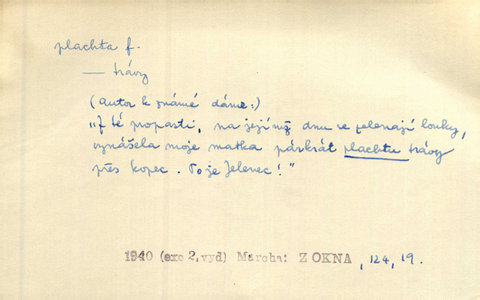 plachta f.
— trávy
(autor k známé dáme:)
"Z té propasti, na jejímž dnu se zelenají louky,
vynášela moje matka párkrát plachtu trávy
přes kopec. To je Jelenec!"
1940 (exc 2, vyd) Marcha: Z OKNA, 124, 19.